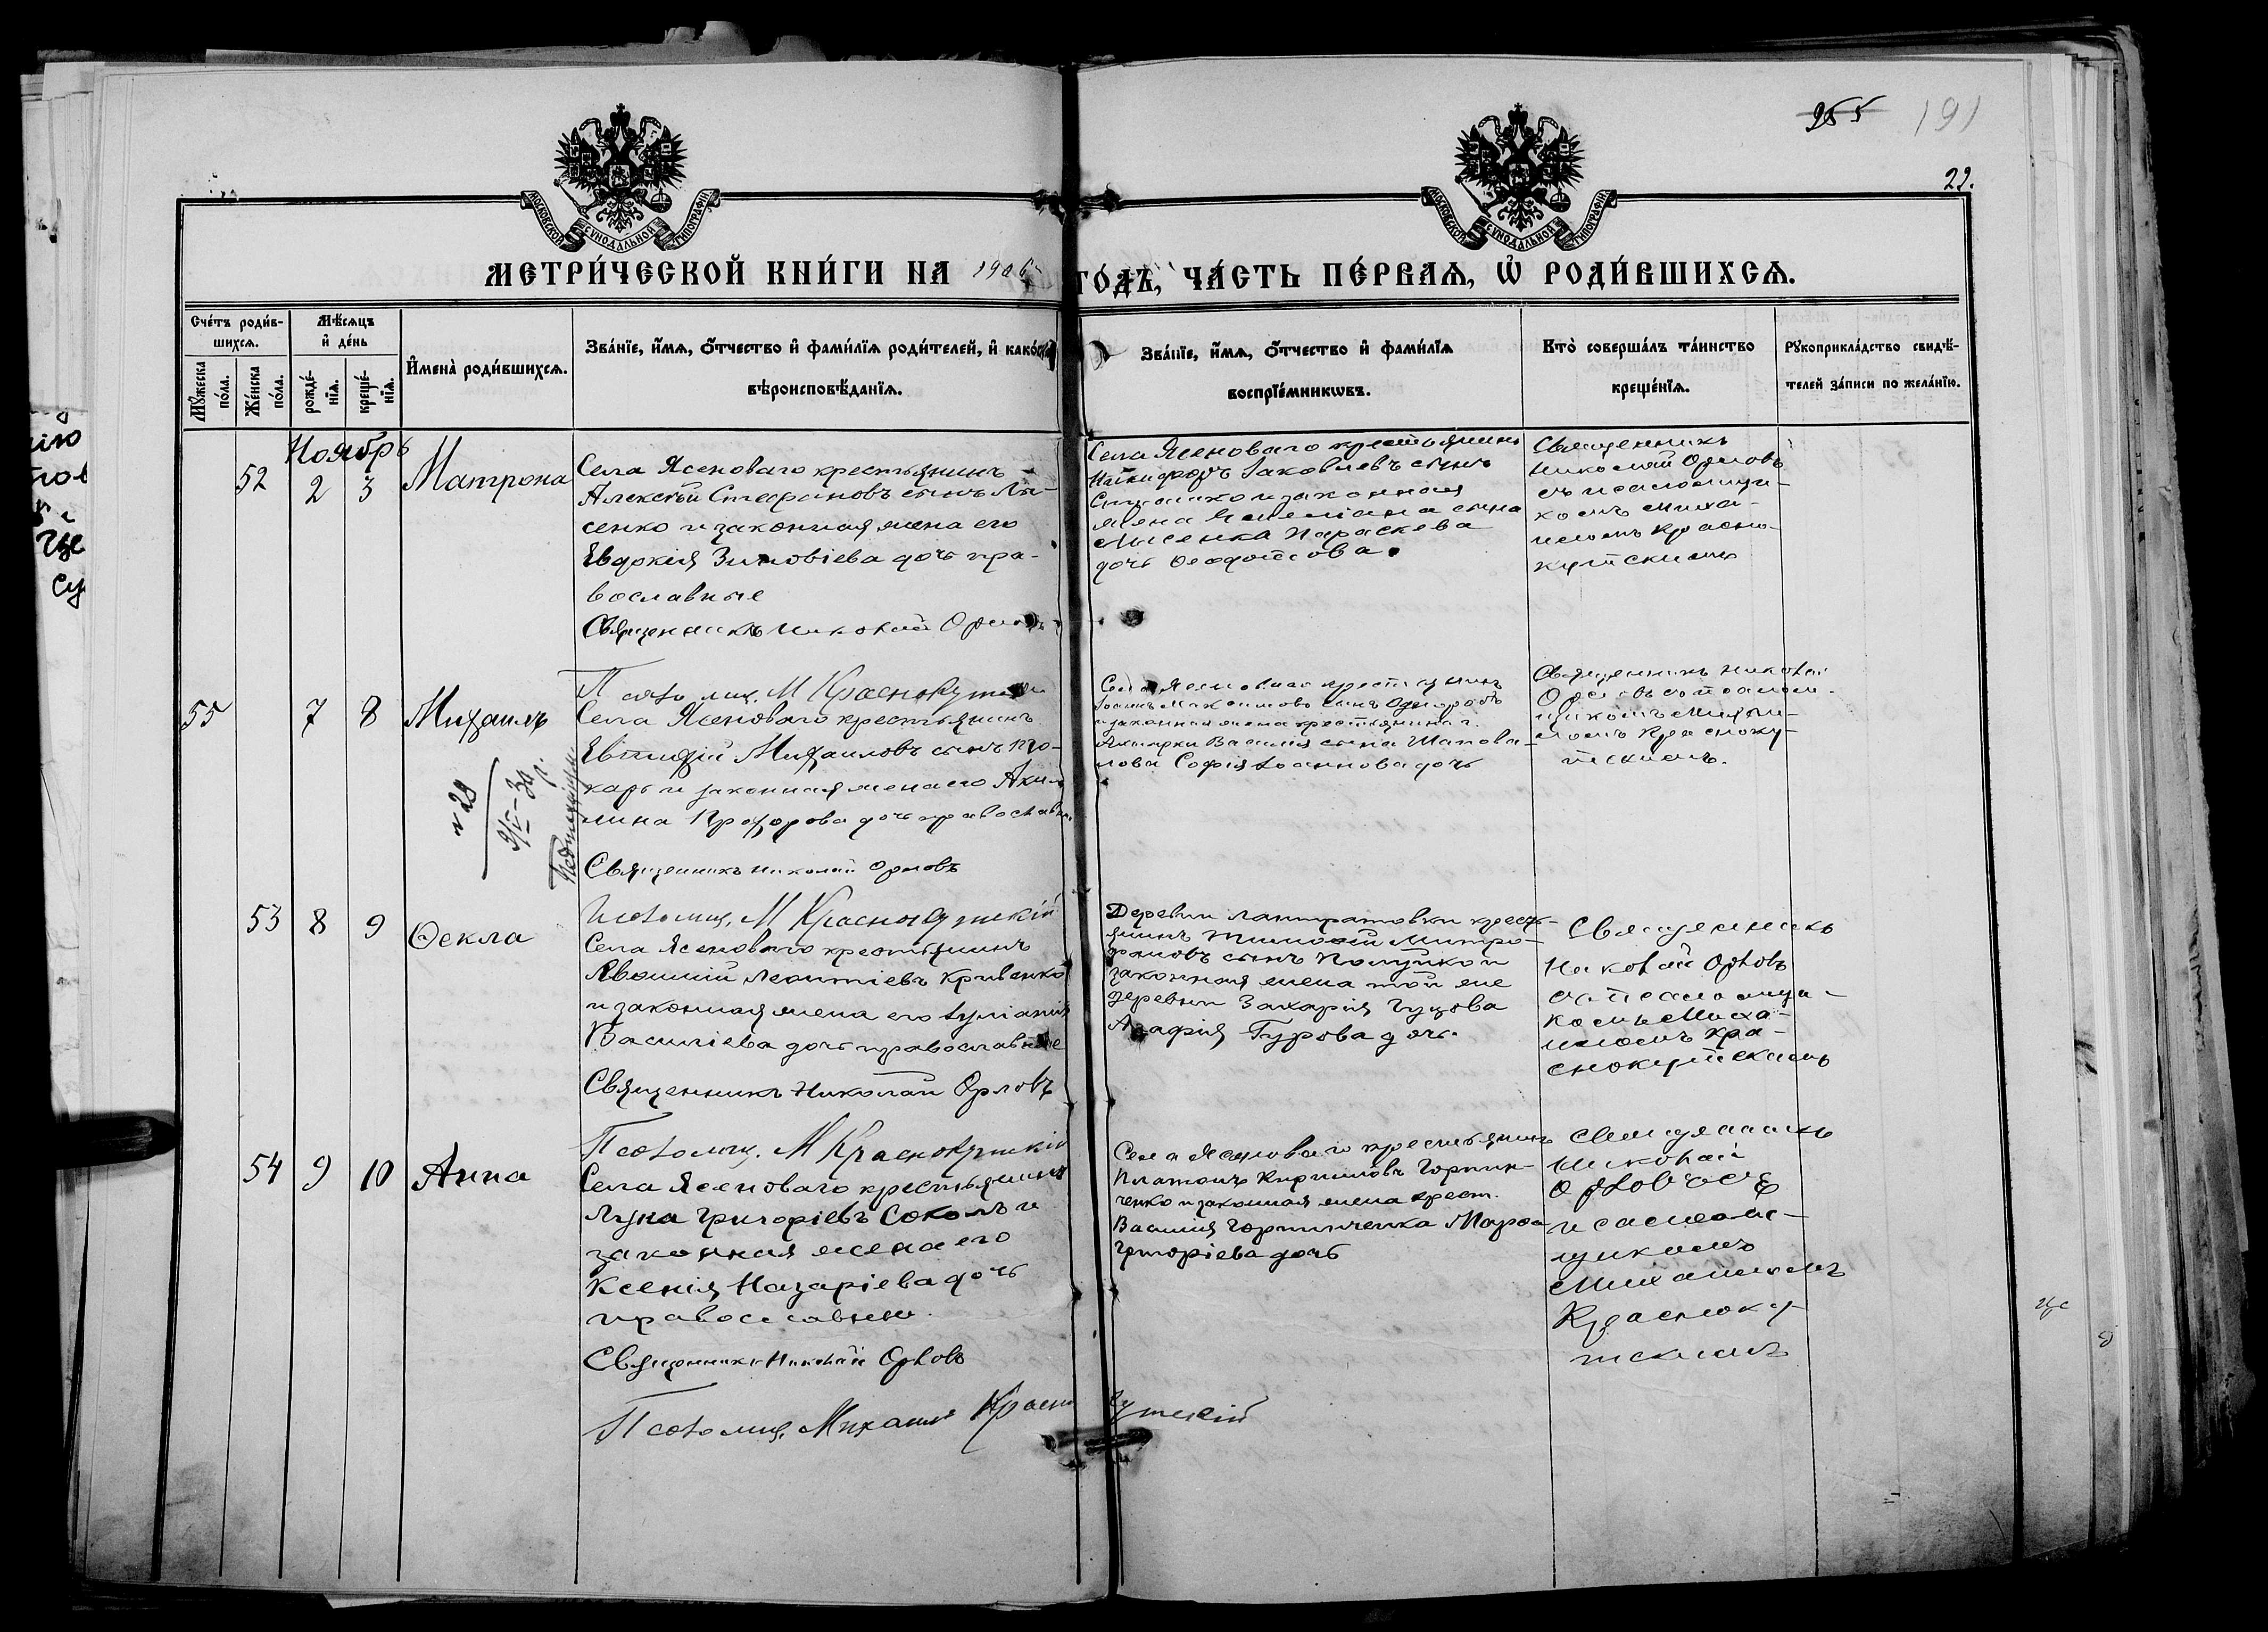 955 191
22.
МОСКОВСКОЙ СѴНОДАЛЬНОЙ ТИПОГРАФІИ
МОСКОВСКОЙ СѴНОДАЛЬНОЙ ТИПОГРАФІИ
МЕТРИ́ЧЕСКОЙ КНИ́ГИ НА 1906 ГО́ДЪ, ЧА́СТЬ ПЕ́РВАѦ, Ѡ҆ РОДИ́ВШИХСѦ.
Сче́тъ роди́в-
шихсѧ.
Мꙋ́жеска по́ла.
Же́нска по́ла.
Мѣ́сѧцъ
и҆ де́нь
рожде́-
нїѧ.
креще́-
нїѧ.
И҆мена̀ роди́вшихсѧ.
Зва́нїе, и҆́мѧ, ѻ҆́тчество и҆ фами́лїѧ роди́телей, и҆ како́гѡ
вѣроисповѣ́данїѧ.
Зва́нїе, и҆́мѧ, ѻ҆́тчество и҆ фами́лїѧ
воспрїе́мникѡвъ.
Кто̀ соверша́лъ та́инство
креще́нїѧ.
Рꙋкоприкла́дство свидѣ́-
телей за́писи по жела́нїю.
Ноябрь
52 2 3 Матрона
Села Ясеноваго крестьянинъ
Алексѣй Стефановъ сынъ Лы-
сенко и законная жена его
Евдокія Зиновіева дочь пра-
вославные
Священникъ Николай Орловъ
Псаломщ. М Краснокутскій
Села Ясеноваго крестьянинъ
Никифоръ Іаковлевъ сынъ
законная
жена сына
Лысенка Параскева
дочь Ѳеодотова.
Священникъ
Николай Орловъ
съ псаломщи-
комъ Миха-
иломъ Красно-
кутскимъ
55 7 8 Михаилъ
№ 28
Села Ясеноваго крестьянинъ
Евтихій Михаиловъ сынъ
и законная жена его Аки-
лина Прохорова дочь православн.
Священникъ Николай Орловъ
Псаломщ. М Краснокутскій
Села Ясеноваго крестьянинъ
Іоаннъ Максимовъ сынъ
и законная жена крестьянина г.
Ахтырки Василія сына Шапова-
лова Софія Іоаннова дочь
Священникъ Николай
Орловъ съ псалом-
щикомъ Михаи-
ломъ Красноку-
тскимъ.
53 8 9 Ѳекла
Села Ясеноваго крестьянинъ
Евѳимій Леонтіевъ Кривенко
и законная жена его Іуліанія
Василіева дочь православные
Священникъ Николай Орловъ
Псаломщ. М Краснокутскій
Деревни крестья-
нинъ Тимоѳей Митро-
фановъ сынъ и
законная жена той же
деревни Захарія
Агафія Гурова дочь.
Священникъ
Николай Орловъ
съ псаломщи-
комъ Миха-
иломъ Кра-
снокутскимъ
54 9 10 Анна
Села Ясеноваго крестьянинъ
Лука Григоріевъ Соколъ и
законная жена его
Ксенія Назаріева дочь
православные.
Священникъ Николай Орловъ
Псаломщ. Михаилъ Краснокутскій
Села Ясеноваго крестьянинъ
Платонъ Кирилловъ Горпин-
ченко и законная жена крест.
Василія Горпинченка Марѳа
Григоріева дочь
Священникъ
Николай
Орловъ съ
псалом-
щикомъ
Михаиломъ
Красноку-
тскимъ